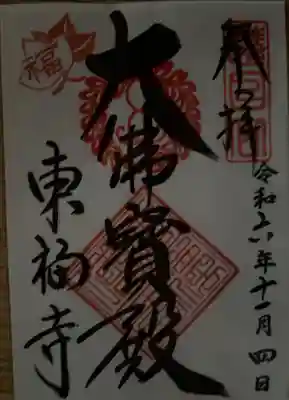 奉拝
令和六年十一月四日
大佛寳殿
東福寺
福